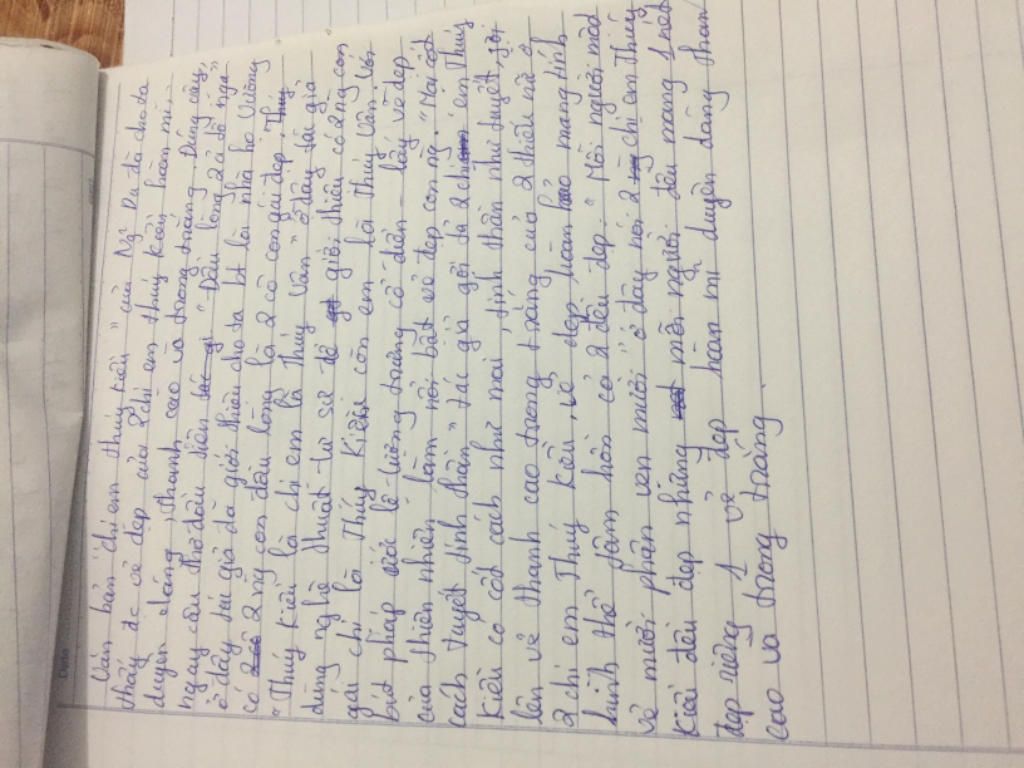 Văn bản "chị em thúy kiều" của Ng~ Du đã cho ta
thấy đc vẻ đẹp của 2 chị em thúy kiều hoàn mĩ,
duyên dáng, thanh cao và trong trắng. Dúng vậy,
ngay câu thơ đầu tiên "Đầu lòng 2 ả tố nga"
ở đây tác giả đã giới thiệu cho ta bt là nhà họ Vương
có 2 ng con đầu lòng là 2 cô con gái đẹp. Thúy
"Thúy kiều là chị em là Thúy Vân" ở đây tác giả
dùng nghệ thuật tự sự để giới thiệu có 2 ng con
gái chị là Thúy Kiều còn em là Thúy Vân. Với
bút pháp ước lệ - tượng trưng cổ điển - lấy vẻ đẹp
của thiên nhiên làm nổi bật vẻ đẹp con ng. "Mai cốt
cách tuyết tinh thần" tác giả gợi tả 2 chị em Thúy
kiều có cốt cách như mai, tinh thần như tuyết, gợi
lên vẻ thanh cao trong trắng của 2 thiếu nữ ở
2 chị em Thúy kiều, vẻ đẹp hoàn hảo mang tính
hình thể tâm hồn cả 2 đều đẹp. "Mỗi người một
vẻ mười phân vẹn mười" ở đây nói 2 chị em Thúy
Kiều đều đẹp nhưng mỗi người đều mang 1 nét
đẹp riêng 1 vẻ đẹp hoàn mĩ duyên dáng thanh
cao và trong trắng.